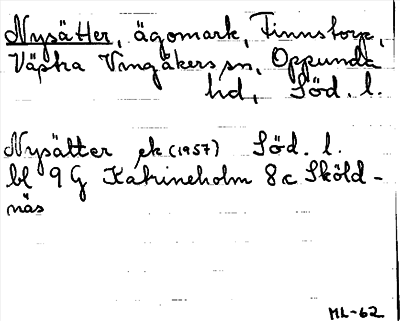 Nysätter, ägomark, Finnstorp,
Västra Vingåkers sn, Oppunda
hd, Söd. l.
Nysätter ek (1957) Söd. l.
bl 9 G Katrineholm 8 c Sköld-
näs
ML-62